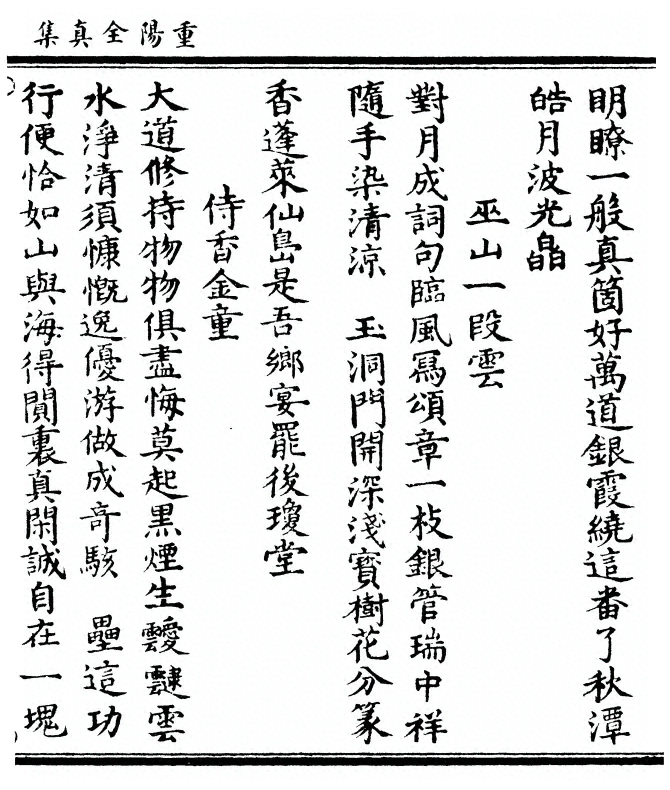 重陽全真集
明瞭一般真箇好萬道銀霞繞這番了秋潭
皓月波光皛
巫山一段雲
對月成詞句臨風寫頌章一枝銀管瑞中祥
隨手染清涼　玉洞門開深淺寶樹花分篆
香蓬萊仙島是吾鄉宴罷後瓊堂
侍香金童
大道修持物物俱盡悔莫起黑煙生靉靆雲
水淨清須慷慨逸優游做成奇駭　壘這功
行便恰如山與海得閴裏真閑誠自在一塊